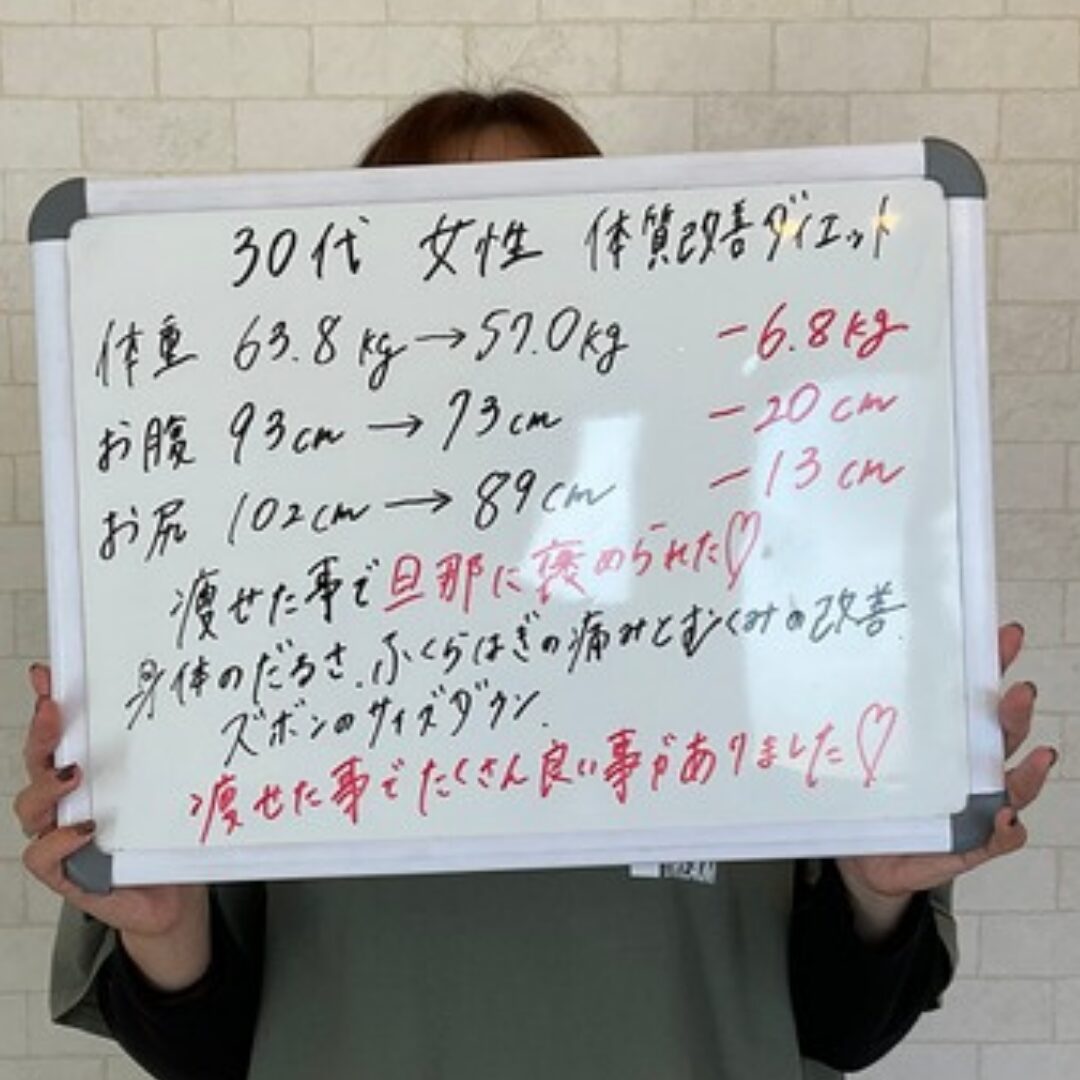 30代 女性 体質改善ダイエット
体重 63.8kg→57.0kg -6.8kg
お腹 93cm→73cm -20cm
お尻 102cm→89cm -13cm
痩せた事で旦那に褒められた♡
身体のだるさ、ふくらはぎの痛みとむくみの改善.
ズボンのサイズダウン.
痩せた事でたくさん良い事がありました♡